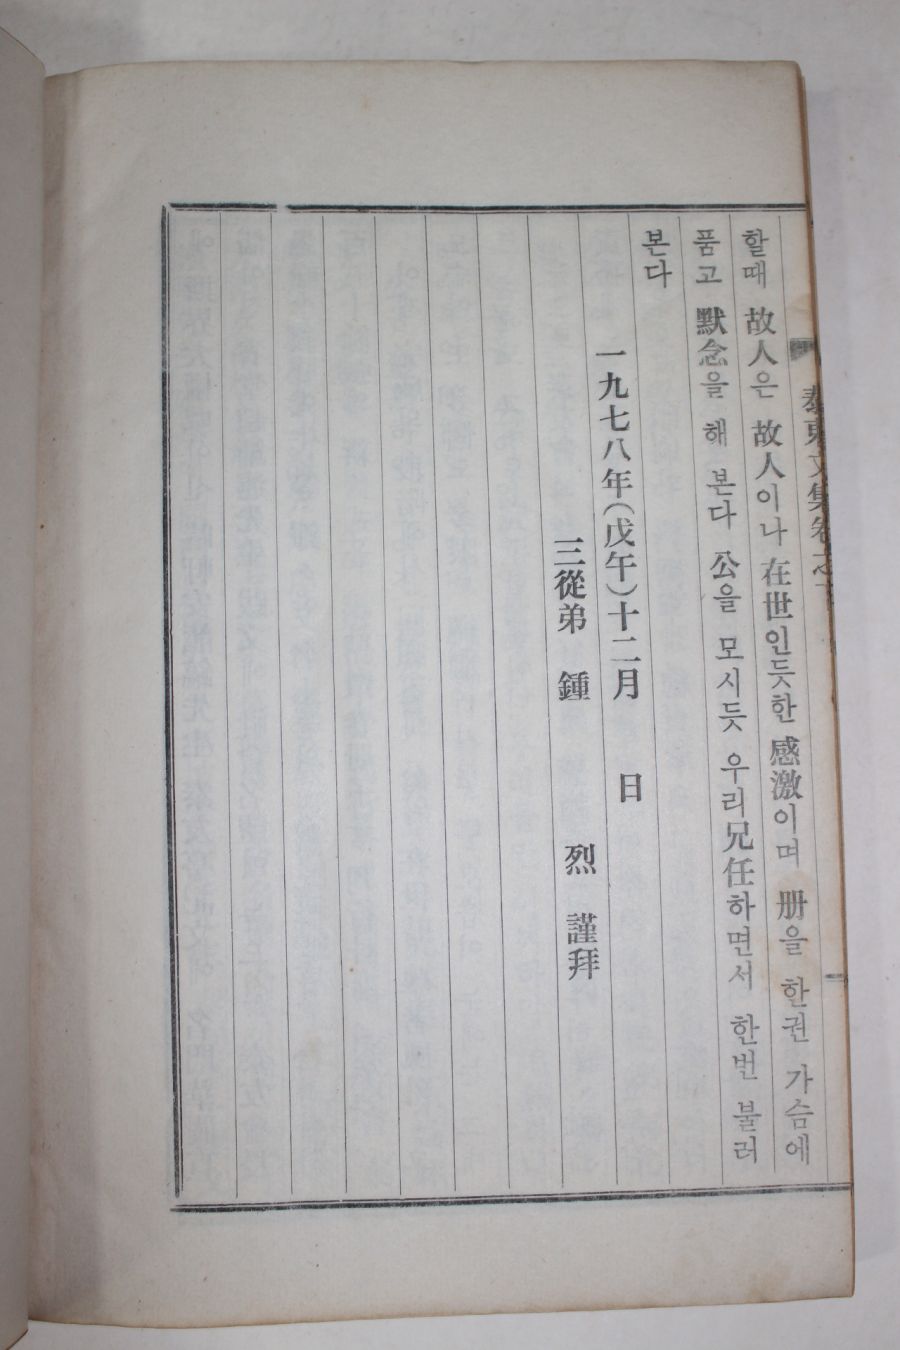 泰東文集卷之下
할때 故人은 故人이나 在世인듯한 感激이며 册을 한권 가슴에
품고 默念을 해 본다 公을 모시듯 우리兄任하면서 한번 불러
본다
一九七八年(戊午)十二月 日
三從弟 鍾 烈 謹拜